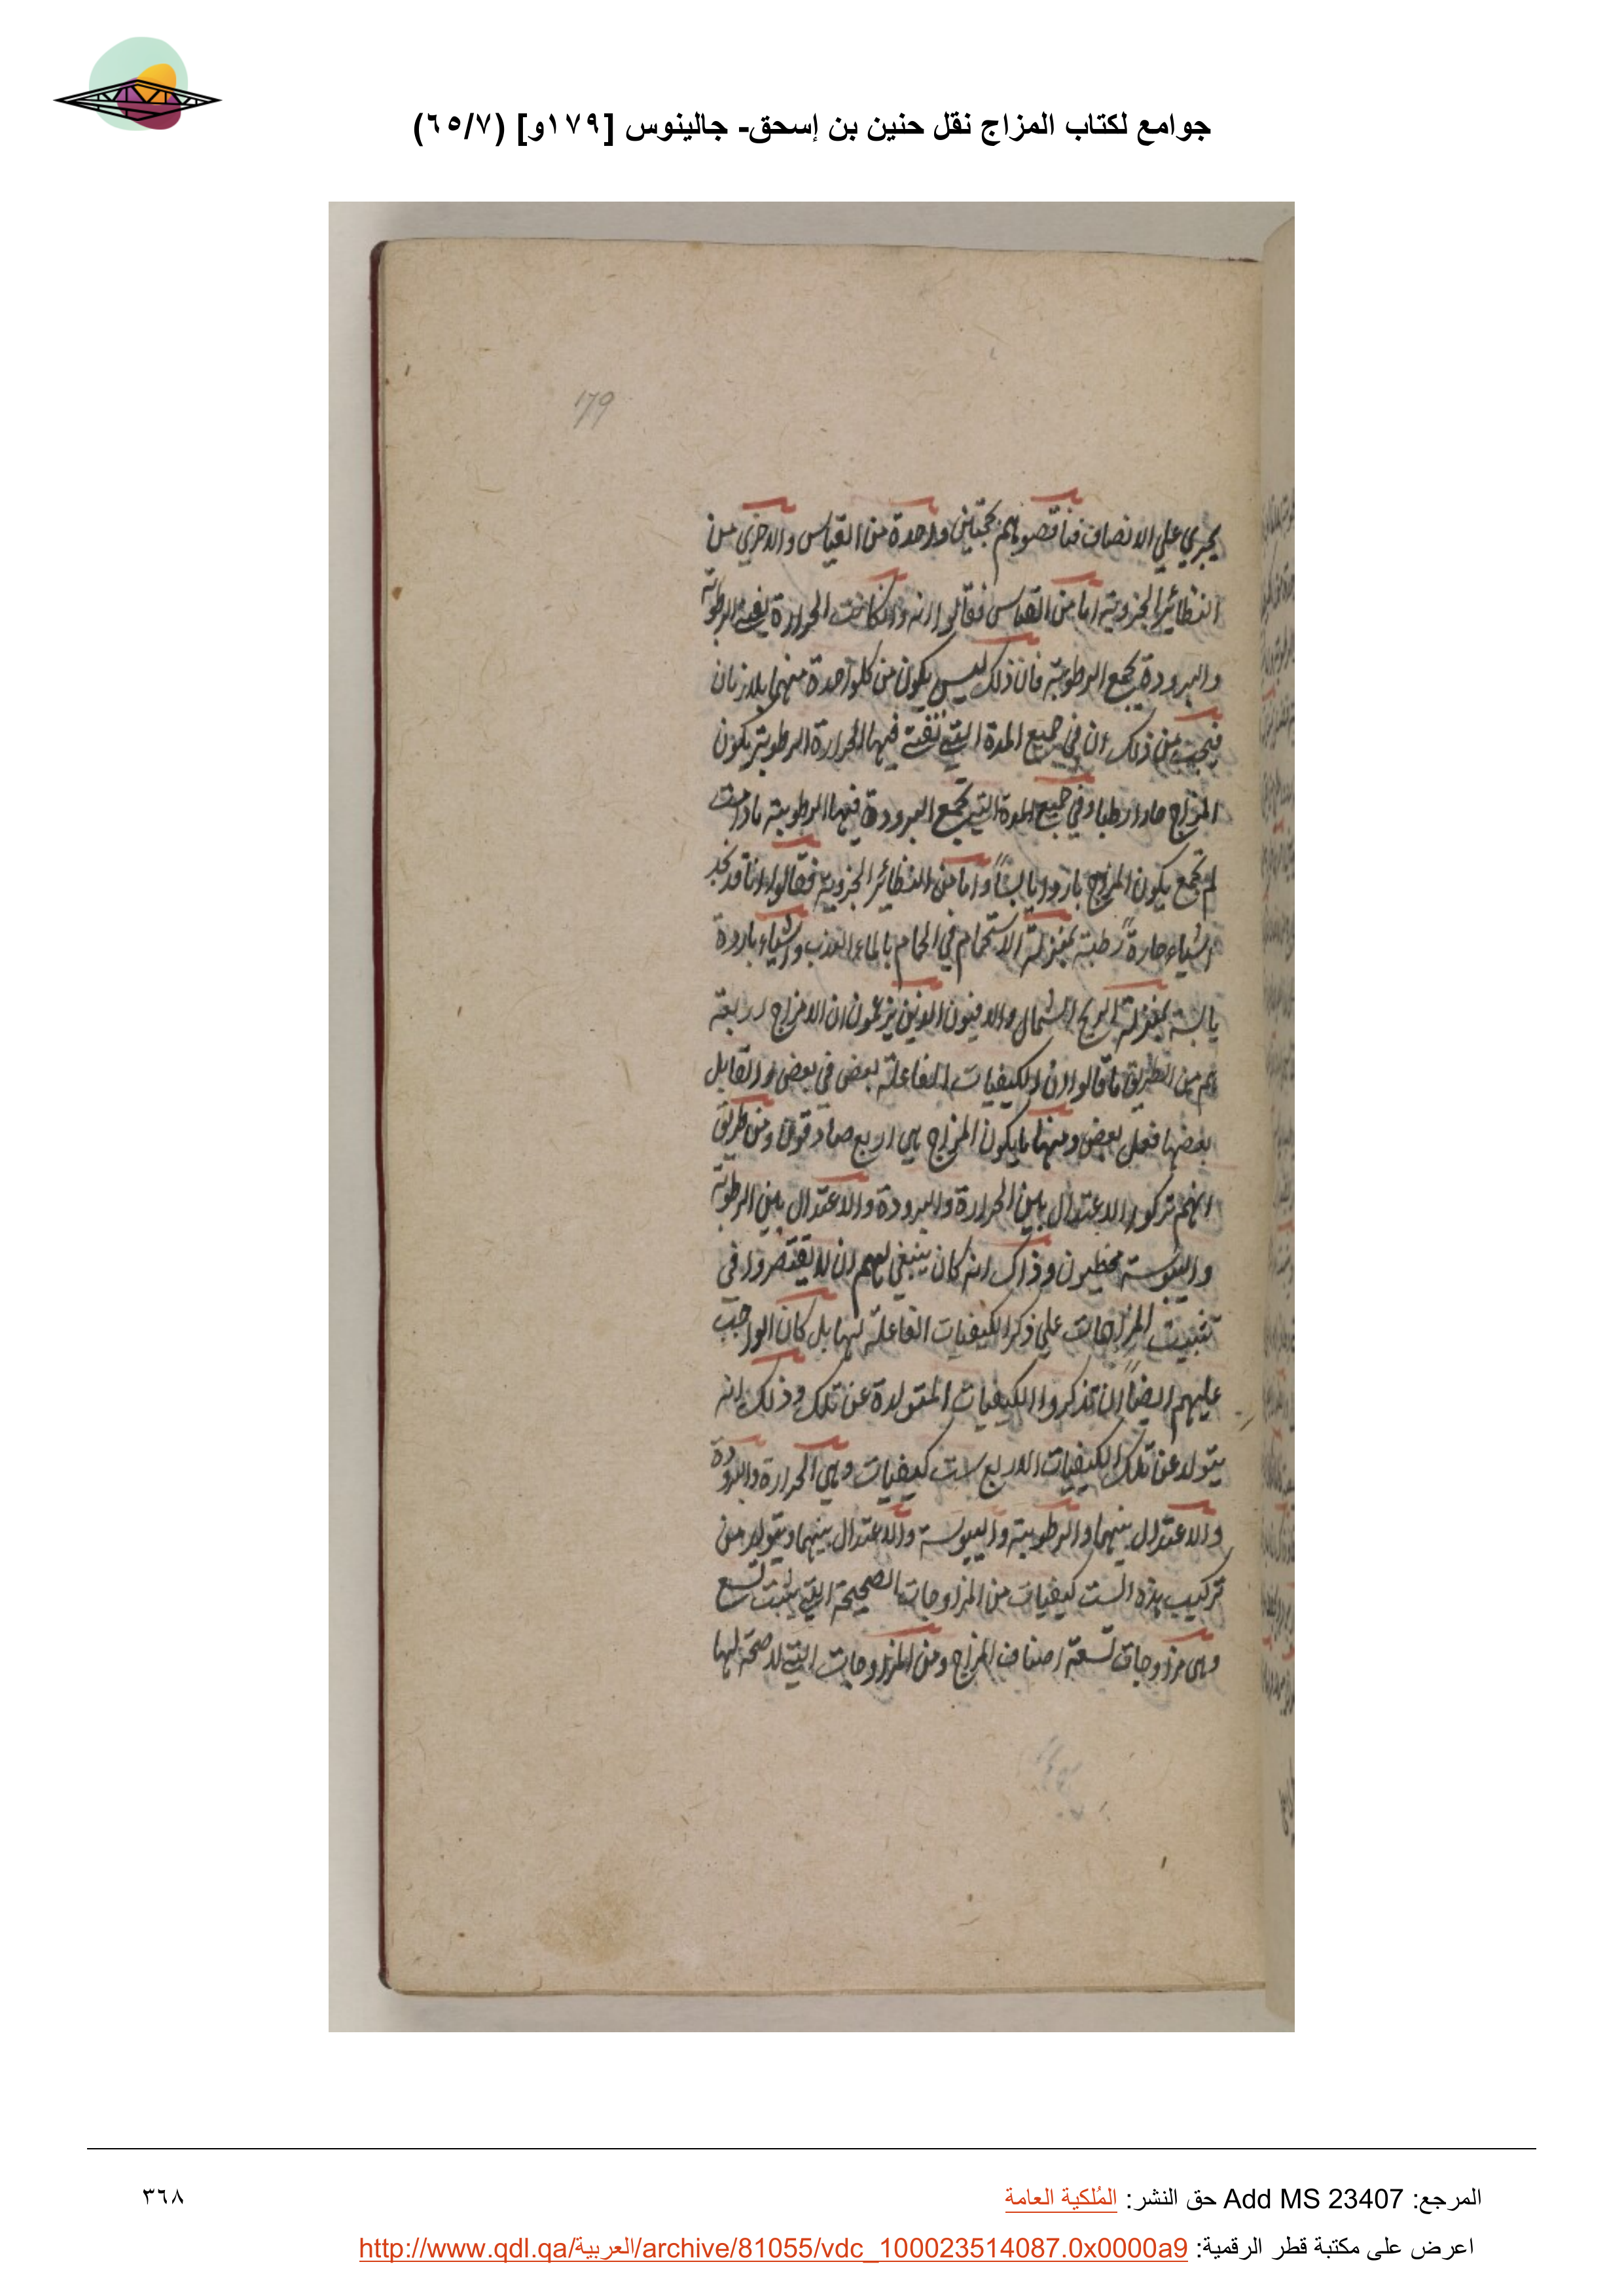 جوامع لكتاب المزاج نقل حنين بن إسحق- جالينوس [١٧٩و] (٦٥/٧)
179
يجري علي الانصاف فناقضوهم بحجتين واحدة من القياس والاخري من
النظائر الجزوية اما من القياس فقالوا انه وان كانت الحرارة تفني الرطوبة
والبرودة تجمع الرطوبة فان ذلك ليس يكون من كل واحدة منهما بلا زمان
فيجب من ذلك ان في جميع المدة التي تفني فيها الحرارة الرطوبة يكون
المزاج حارا رطبا وفي جميع المدة التي تجمع البرودة فيها الرطوبة مادامت
لم تجمع يكون المزاج باردا يابسًا واما من النظائر الجزوية فقالوا انا قد نجد
اشياء حارةً رطبة بمنزلة الاستحمام في الحمام بالماء العذب واشياء باردة
يابسة بمنزلة الريح الشمال والاخرون الذين يزعمون ان الامزاج اربعة
هم من الطريق ما قالوا ان الكيفيات الفاعلة بعض في بعض والقابل
بعضها فعل بعض ومنها ما يكون المزاج هي اربع صادقون ومن طريق
انهم تركوا الاعتدال بين الحرارة والبرودة والاعتدال بين الرطوبة
واليبوسة مخطيون وذاك انه كان ينبغي لهم ان لا يقتصروا في
تثبيت المزاجات علي ذكر الكيفيات الفاعلة لها بل كان الواجب
عليهم ايضًا ان تذكروا الكيفيات المتولدة عن تلك وذلك انه
يتولد عن تلك الكيفيات الاربع ست كيفيات وهي الحرارة والبرودة
والاعتدال بينهما والرطوبة واليبوسة والاعتدال بينهما ويتولد من
تركيب هذه الست كيفيات من المزاوجات الصحيحة التي يثبت تسع
وهي مزاوجات تسعة اصناف المزاج ومن المزاوجات التي لا صحة لها
المرجع: Add MS 23407 حق النشر: المُلكية العامة
٣٦٨
اعرض على مكتبة قطر الرقمية: http://www.qdl.qa/العربية/archive/81055/vdc_100023514087.0x0000a9